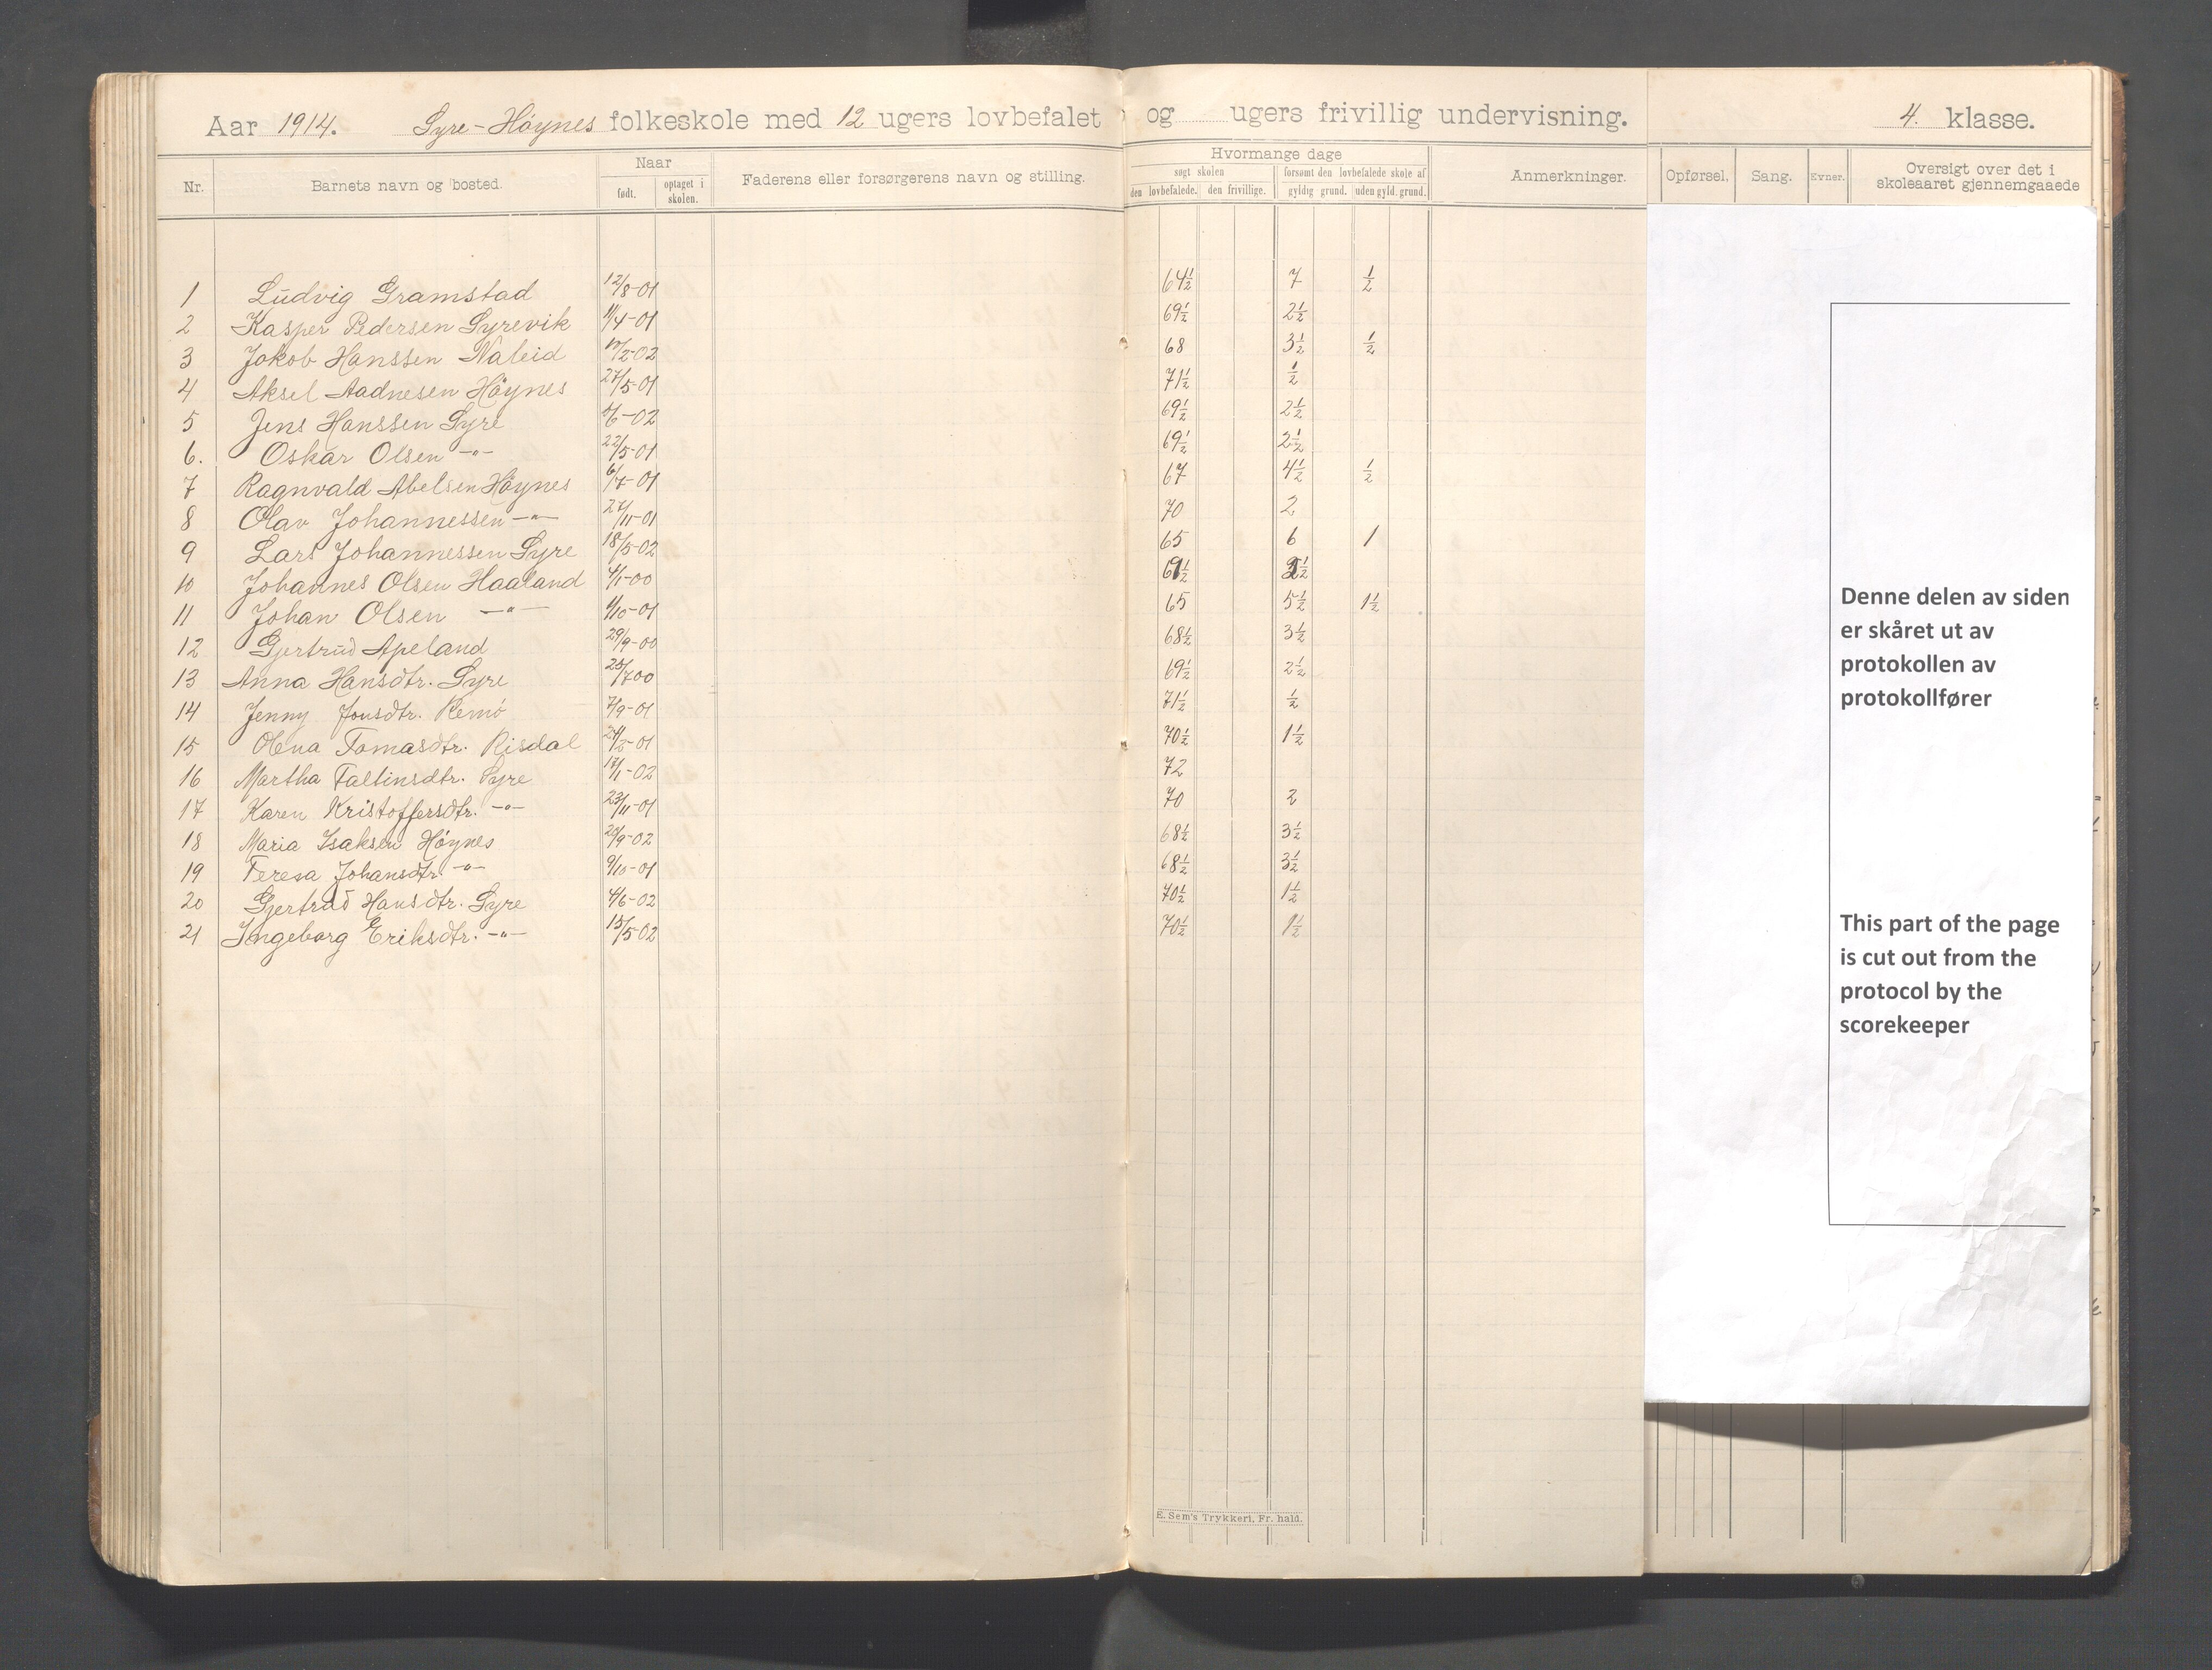 Aar 1914. Syre-Höynes folkeskole med 12 ugers lovbefalet og ugers frivillig undervisning. 4. klasse.
Nr. Barnets navn og bosted. Naar født. optaget i skolen. Faderens eller forsørgerens navn og stilling. Hvormange dage søgt skolen den lovbefalede. den frivillige. forsømt den lovbefalede skole af gyldig grund. uden gyld. grund. Anmerkninger. Opførsel. Sang. Evner. Oversigt over det i skoleaaret gjennemgaaede
1 Ludvig Gramstad 12/8-01 64½ 7 ½
2 Kasper Pedersen Syrevik 11/4-01 69½ 2½
3 Jokob Hanssen Naleid /2-02 68 3½ ½
4 Aksel Aadnesen Höynes 27/5-01 71½ ½
5 Jens Hanssen Syre /6-02 69½ 2½
6. Oskar Olsen -"- 22/5-01 69½ 2½
7 Ragnvald Abelsen Höynes 6/7-01 67 4½ ½
8 Olav Johannessen -"- 27/11-01 70 2
9 Lars Johannessen Syre 18/5-02 65 6 1
10 Johannes Olsen Haaland 4/1-00
11 Johan Olsen -"- /10-01 65 5½ 1½
12 Gjertrud Apeland 29/9-00 68½ 3½
13 Anna Hansdtr. Syre 25/7 00 69½ 2½
14 Jenny Jonsdtr. Remö 7/9-01 71½ ½
15 Olena Tomasdtr. Risdal 24/5-01 70½ 1½
16 Martha Faltinsdtr. Syre 17/1-02 72
17 Karen Kristoffersdtr. -"- 23/11-01 70 2
18 Maria Isaksen Höynes 20/9-02 68½ 3½
19 Teresa Johansdtr. -"- 9/10-01 68½ 3½
20 Gjertrud Hansdtr. Syre 4/6-02 70½ 1½
21 Ingeborg Eriksdtr. -"- 15/5-02 70½ 1½
E. Sem's Trykkeri, Fr. hald.
Denne delen av siden
er skåret ut av
protokollen av
protokollfører
This part of the page
is cut out from the
protocol by the
scorekeeper